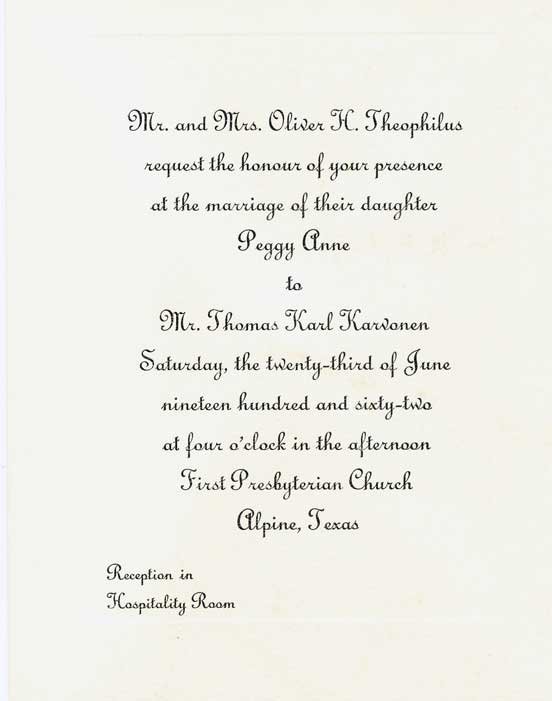 Mr. and Mrs. Oliver H. Theophilus
request the honour of your presence
at the marriage of their daughter
Peggy Anne
to
Mr. Thomas Karl Karvonen
Saturday, the twenty-third of June
nineteen hundred and sixty-two
at four o'clock in the afternoon
First Presbyterian Church
Alpine, Texas
Reception in
Hospitality Room